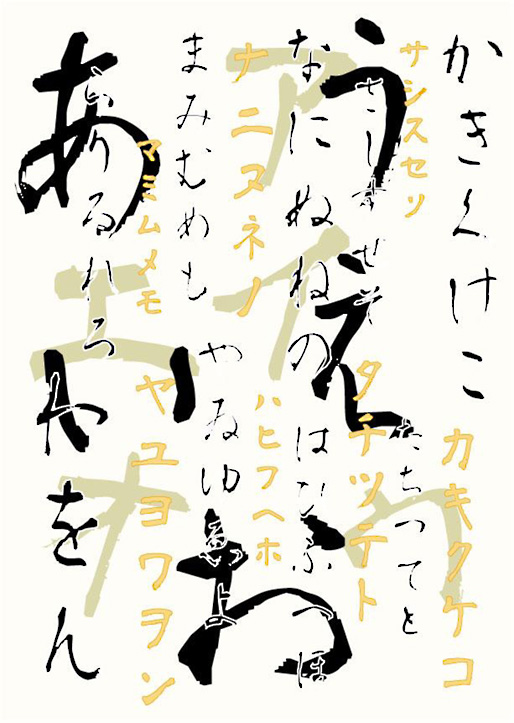 かきくけこ
カキクケコ
サシスセソ
さしすせそ
たちつてと
タチツテト
なにぬねの
はひふへほ
ナニヌネノ
ハヒフヘホ
まみむめも
やゐゆゑよ
マミムメモ
ヤユヨワヲン
らりるれろ
わをん
あ
い
う
え
お
ア
イ
ウ
エ
オ